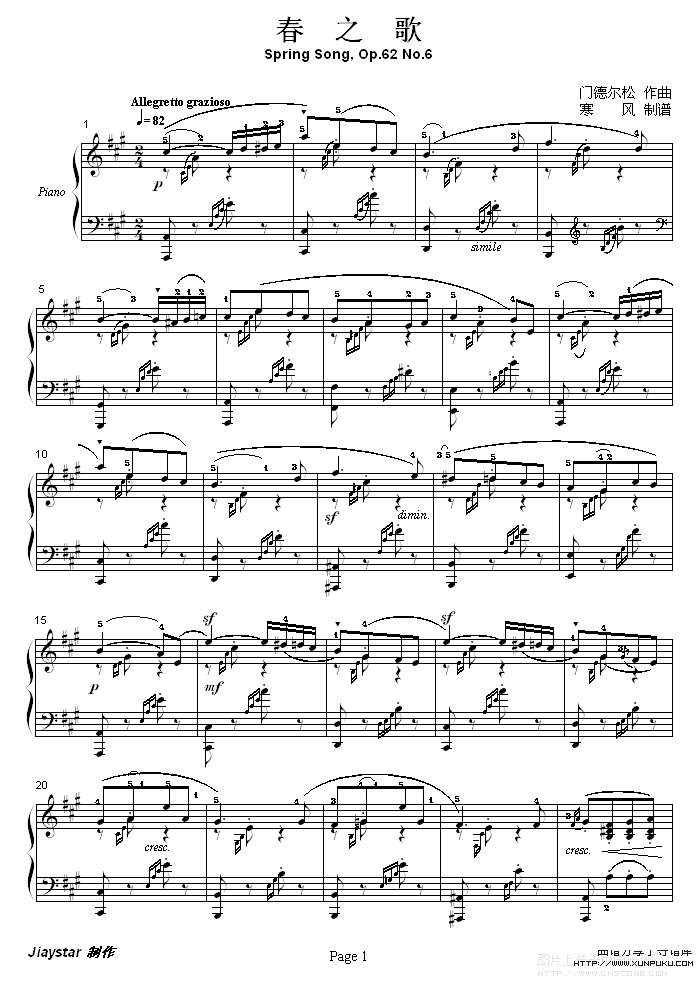 春 之 歌
Spring Song, Op.62 No.6
门德尔松 作曲
寒 风 制谱
Allegretto grazioso
♩= 82
1
Piano
p
simile
5
10
sf
dimin.
15
sf
sf
p
mf
20
cresc.
cresc.
Jiaystar 制作
Page 1
HTTP://WWW.XUNPUKU.COM
WWW.CNSCORE.COM